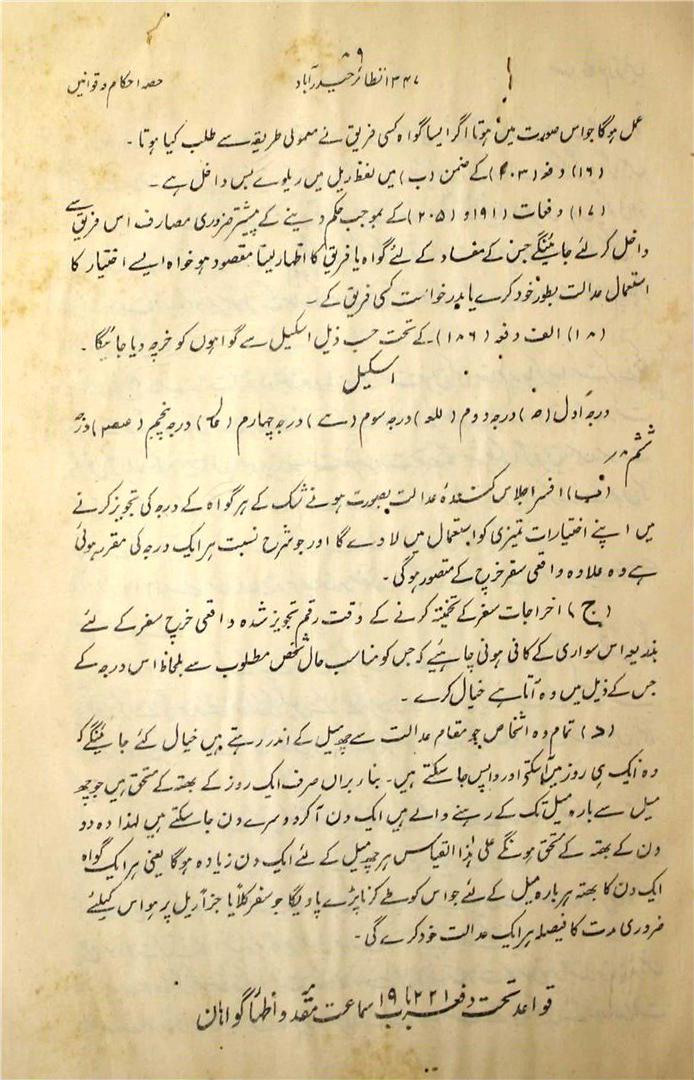 ۸۹
۱۳۴۷ نظائر حیدرآباد
حصہ احکام و قوانین
عمل ہوگا جو اس صورت میں ہوتا اگر ایسا گواہ کسی فریق نے معمولی طریقہ سے طلب کیا ہوتا ۔
(۱۶) دفعہ (۴۰۳) کے ضمن (ب) میں لفظ ریل میں ریلوے بس داخل ہے ۔
(۱۷) دفعات (۱۹۱ و ۲۰۵) کے بموجب حکم دینے کے پیشتر ضروری مصارف اس فریق سے
داخل کرلئے جائینگے جن کے مفاد کے لئے گواہ یا فریق کا اظہار لینا مقصود ہو خواہ ایسے اختیار کا
استعمال عدالت بطور خود کرے یا بدرخواست کسی فریق کے ۔
(۱۸) الف دفعہ (۱۸۶) کے تحت حسب ذیل اسکیل سے گواہوں کو خرچہ دیا جائیگا ۔
اسکیل
درجہ اول درجہ دوم (للعہ) درجہ سوم درجہ چہارم درجہ پنجم درجہ
ششم ۸ر
(ب) افسر اجلاس کنندہ عدالت بصورت ہونے شک کے ہر گواہ کے درجہ کی تجویز کرنے
میں اپنے اختیارات تمیزی کو استعمال میں لا دے گا اور جو شرح نسبت ہر ایک درجہ کی مقرر ہوئی
ہے وہ علاوہ واقعی سفر خرچ کے متصور ہوگی ۔
(ج) اخراجات سفر کے تخمینہ کرنے کے وقت رقم تجویز شدہ واقعی خرچ سفر کے لئے
بذریعہ اس سواری کے کافی ہونی چاہئیے کہ جس کو مناسب حال شخص مطلوب سے بلحاظ اس درجہ کے
جس کے ذیل میں وہ آتا ہے خیال کرے ۔
(د) تمام وہ اشخاص جو مقام عدالت سے چھ میل کے اندر رہتے ہیں خیال کئے جائینگے کہ
وہ ایک ہی روز میں آسکتے اور واپس جا سکتے ہیں ۔ بناء براں صرف ایک روز کے بھتہ کے مستحق ہیں جو چھ
میل سے بارہ میل تک کے رہنے والے ہیں ایک دن آکر دوسرے دن جاسکتے ہیں لہذا وہ دو
دن کے بھتہ کے مستحق ہونگے علی ہذا القیاس ہر چھ میل کے لئے ایک دن زیادہ ہوگا یعنی ہر ایک گواہ
ایک دن کا بھتہ ہر بارہ میل کے لئے جو اس کو طے کرنا پڑے پاویگا جو سفر کلاً یا جزاً ریل پر ہو اس کیلئے
ضروری مدت کا فیصلہ ہر ایک عدالت خود کرے گی ۔
قواعد تحت دفعہ ۲۲۱ باب ۱۹ سماعت مقدمہ و اظہار گواہان